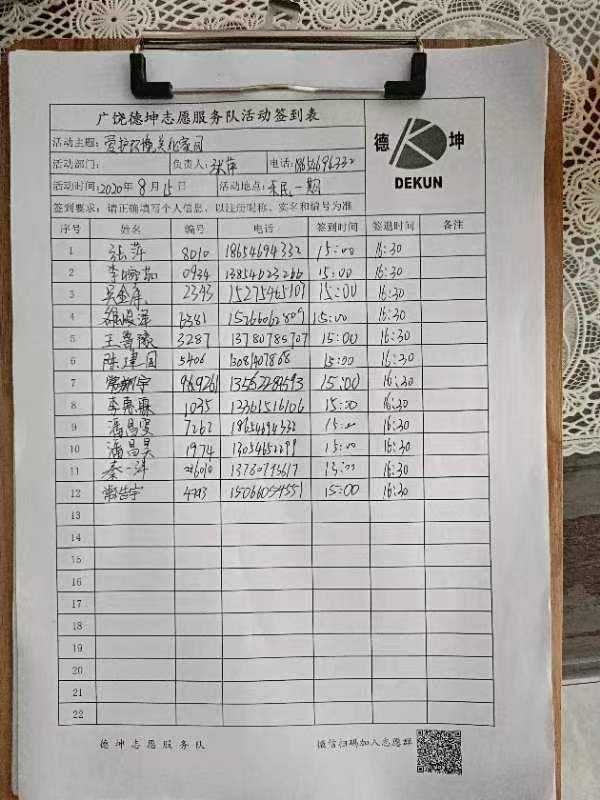 广饶德坤志愿服务队活动签到表
德 坤
DEKUN
活动主题：爱护环境美化家园
活动部门： 负责人：张萍 电话：18654694332
活动时间：2020年8月15日 活动地点：乐民一期
签到要求：请正确填写个人信息，以注册昵称、实名和编号为准
序号 姓名 编号 电话 签到时间 签退时间 备注
1 张萍 8010 18654694332 15:00 16:30
2 李 0934 13854623266 15:00 16:30
3 吴金库 2343 15275465107 15:00 16:30
4 6381 15266062809 15:00 16:30
5 王 3287 13780785707 15:00 16:30
6 陈建国 5406 15:00 16:30
7 常 969261 13562284593 15:00 16:30
8 李 1035 12361516106 15:00 16:30
9 潘昌雯 7262 18654694332 15:00 16:30
10 潘昌昊 1974 13054652299 15:00 16:30
11 秦一洋 15:00 16:30
12 常浩宇 15066054551 15:00 16:30
13
14
15
16
17
18
19
20
21
22
德坤志愿服务队 微信扫码加入志愿群